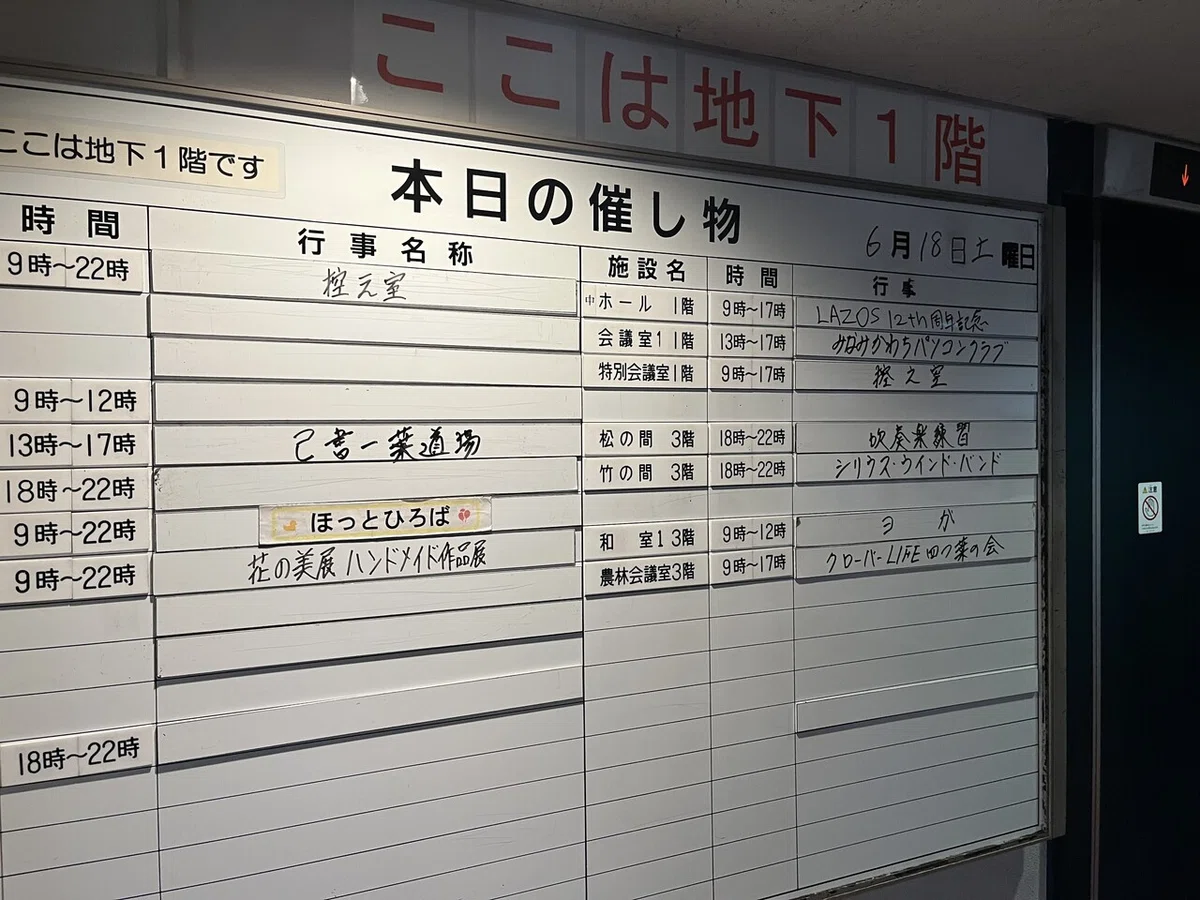 ここは地下1階
ここは地下1階です
本日の催し物
6月18日土曜日
時間 行事名称
9時〜22時 控え室
9時〜12時
13時〜17時 己書一葉道場
18時〜22時
9時〜22時 ほっとひろば
9時〜22時 花の美展 ハンドメイド作品展
18時〜22時
施設名 時間 行事
中ホール 1階 9時〜17時 LAZOS 12th周年記念
会議室1 1階 13時〜17時 みなみかわちパソコンクラブ
特別会議室1階 9時〜17時 控え室
松の間 3階 18時〜22時 吹奏楽練習
竹の間 3階 18時〜22時 シリウス・ウインド・バンド
和室1 3階 9時〜12時 ヨガ
農林会議室3階 9時〜17時 クローバーLIFE 四つ葉の会
↓
注意